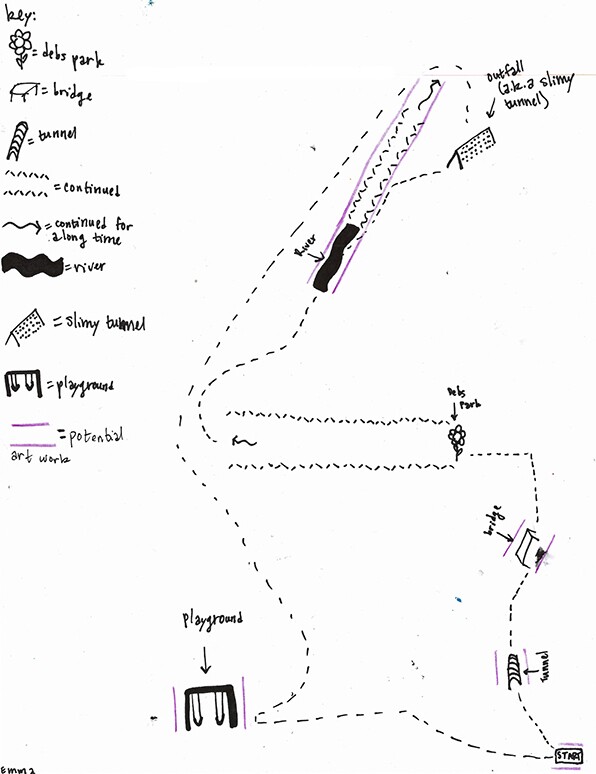 key:
= debs park
= bridge
= tunnel
= continued
= continued for
a long time
= river
= slimy tunnel
= playground
= potential
art work
outfall
(a.k.a slimy
tunnel)
River
Debs
Park
bridge
tunnel
playground
START
Emma